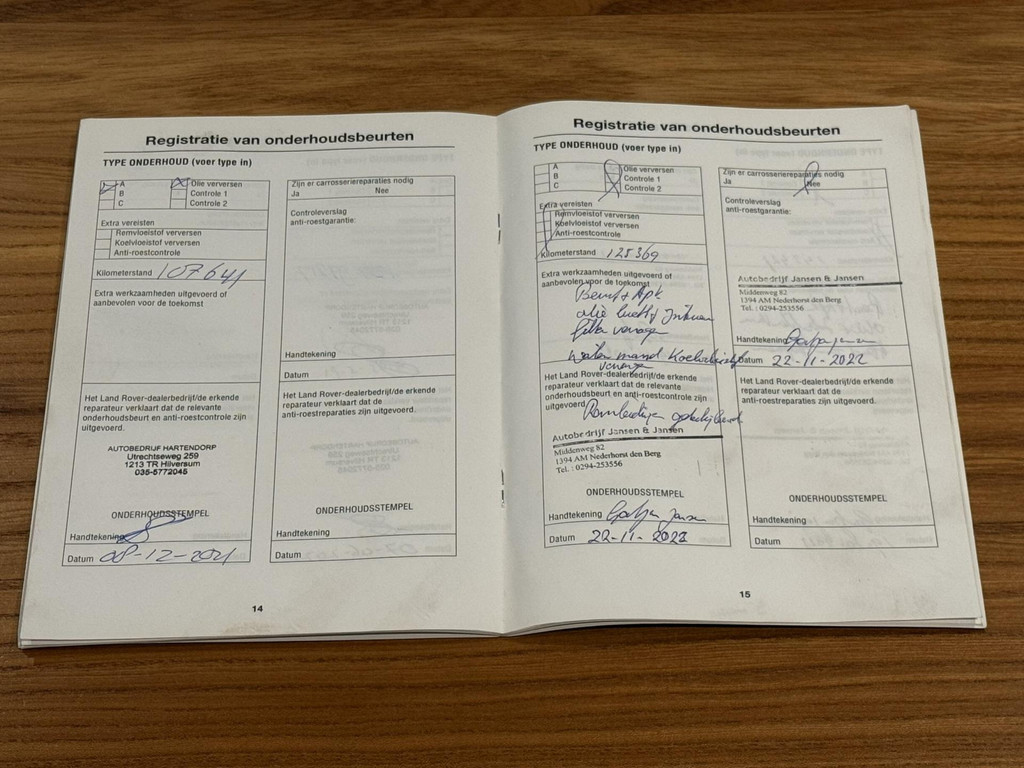 Registratie van onderhoudsbeurten
TYPE ONDERHOUD (voer type in)
A
B
C
Olie verversen
Controle 1
Controle 2
Extra vereisten
Remvloeistof verversen
Koelvloeistof verversen
Anti-roestcontrole
Kilometerstand 107641
Extra werkzaamheden uitgevoerd of
aanbevolen voor de toekomst
Het Land Rover-dealerbedrijf/de erkende
reparateur verklaart dat de relevante
onderhoudsbeurt en anti-roestcontrole zijn
uitgevoerd.
AUTOBEDRIJF HARTENDORP
Utrechtseweg 259
1213 TR Hilversum
035-5772045
ONDERHOUDSSTEMPEL
Handtekening
Datum 08-12-2021
Zijn er carrosseriereparaties nodig
Ja Nee
Controleverslag
anti-roestgarantie:
Handtekening
Datum
Het Land Rover-dealerbedrijf/de erkende
reparateur verklaart dat de
anti-roestreparaties zijn uitgevoerd.
ONDERHOUDSSTEMPEL
Handtekening
Datum
14
Registratie van onderhoudsbeurten
TYPE ONDERHOUD (voer type in)
A
B
C
Olie verversen
Controle 1
Controle 2
Extra vereisten
Remvloeistof verversen
Koelvloeistof verversen
Anti-roestcontrole
Kilometerstand 125369
Extra werkzaamheden uitgevoerd of
aanbevolen voor de toekomst
Beurt + Apk
olie lucht
vervangen
Koelvloeistof
Het Land Rover-dealerbedrijf/de erkende
reparateur verklaart dat de relevante
onderhoudsbeurt en anti-roestcontrole zijn
uitgevoerd.
Autobedrijf Jansen & Jansen
Middenweg 82
1394 AM Nederhorst den Berg
Tel. : 0294-253556
ONDERHOUDSSTEMPEL
Handtekening Jansen
Datum 22-11-2022
Zijn er carrosseriereparaties nodig
Ja Nee
Controleverslag
anti-roestgarantie:
Autobedrijf Jansen & Jansen
Middenweg 82
1394 AM Nederhorst den Berg
Tel. : 0294-253556
Handtekening
Datum 22-11-2022
Het Land Rover-dealerbedrijf/de erkende
reparateur verklaart dat de
anti-roestreparaties zijn uitgevoerd.
ONDERHOUDSSTEMPEL
Handtekening
Datum
15